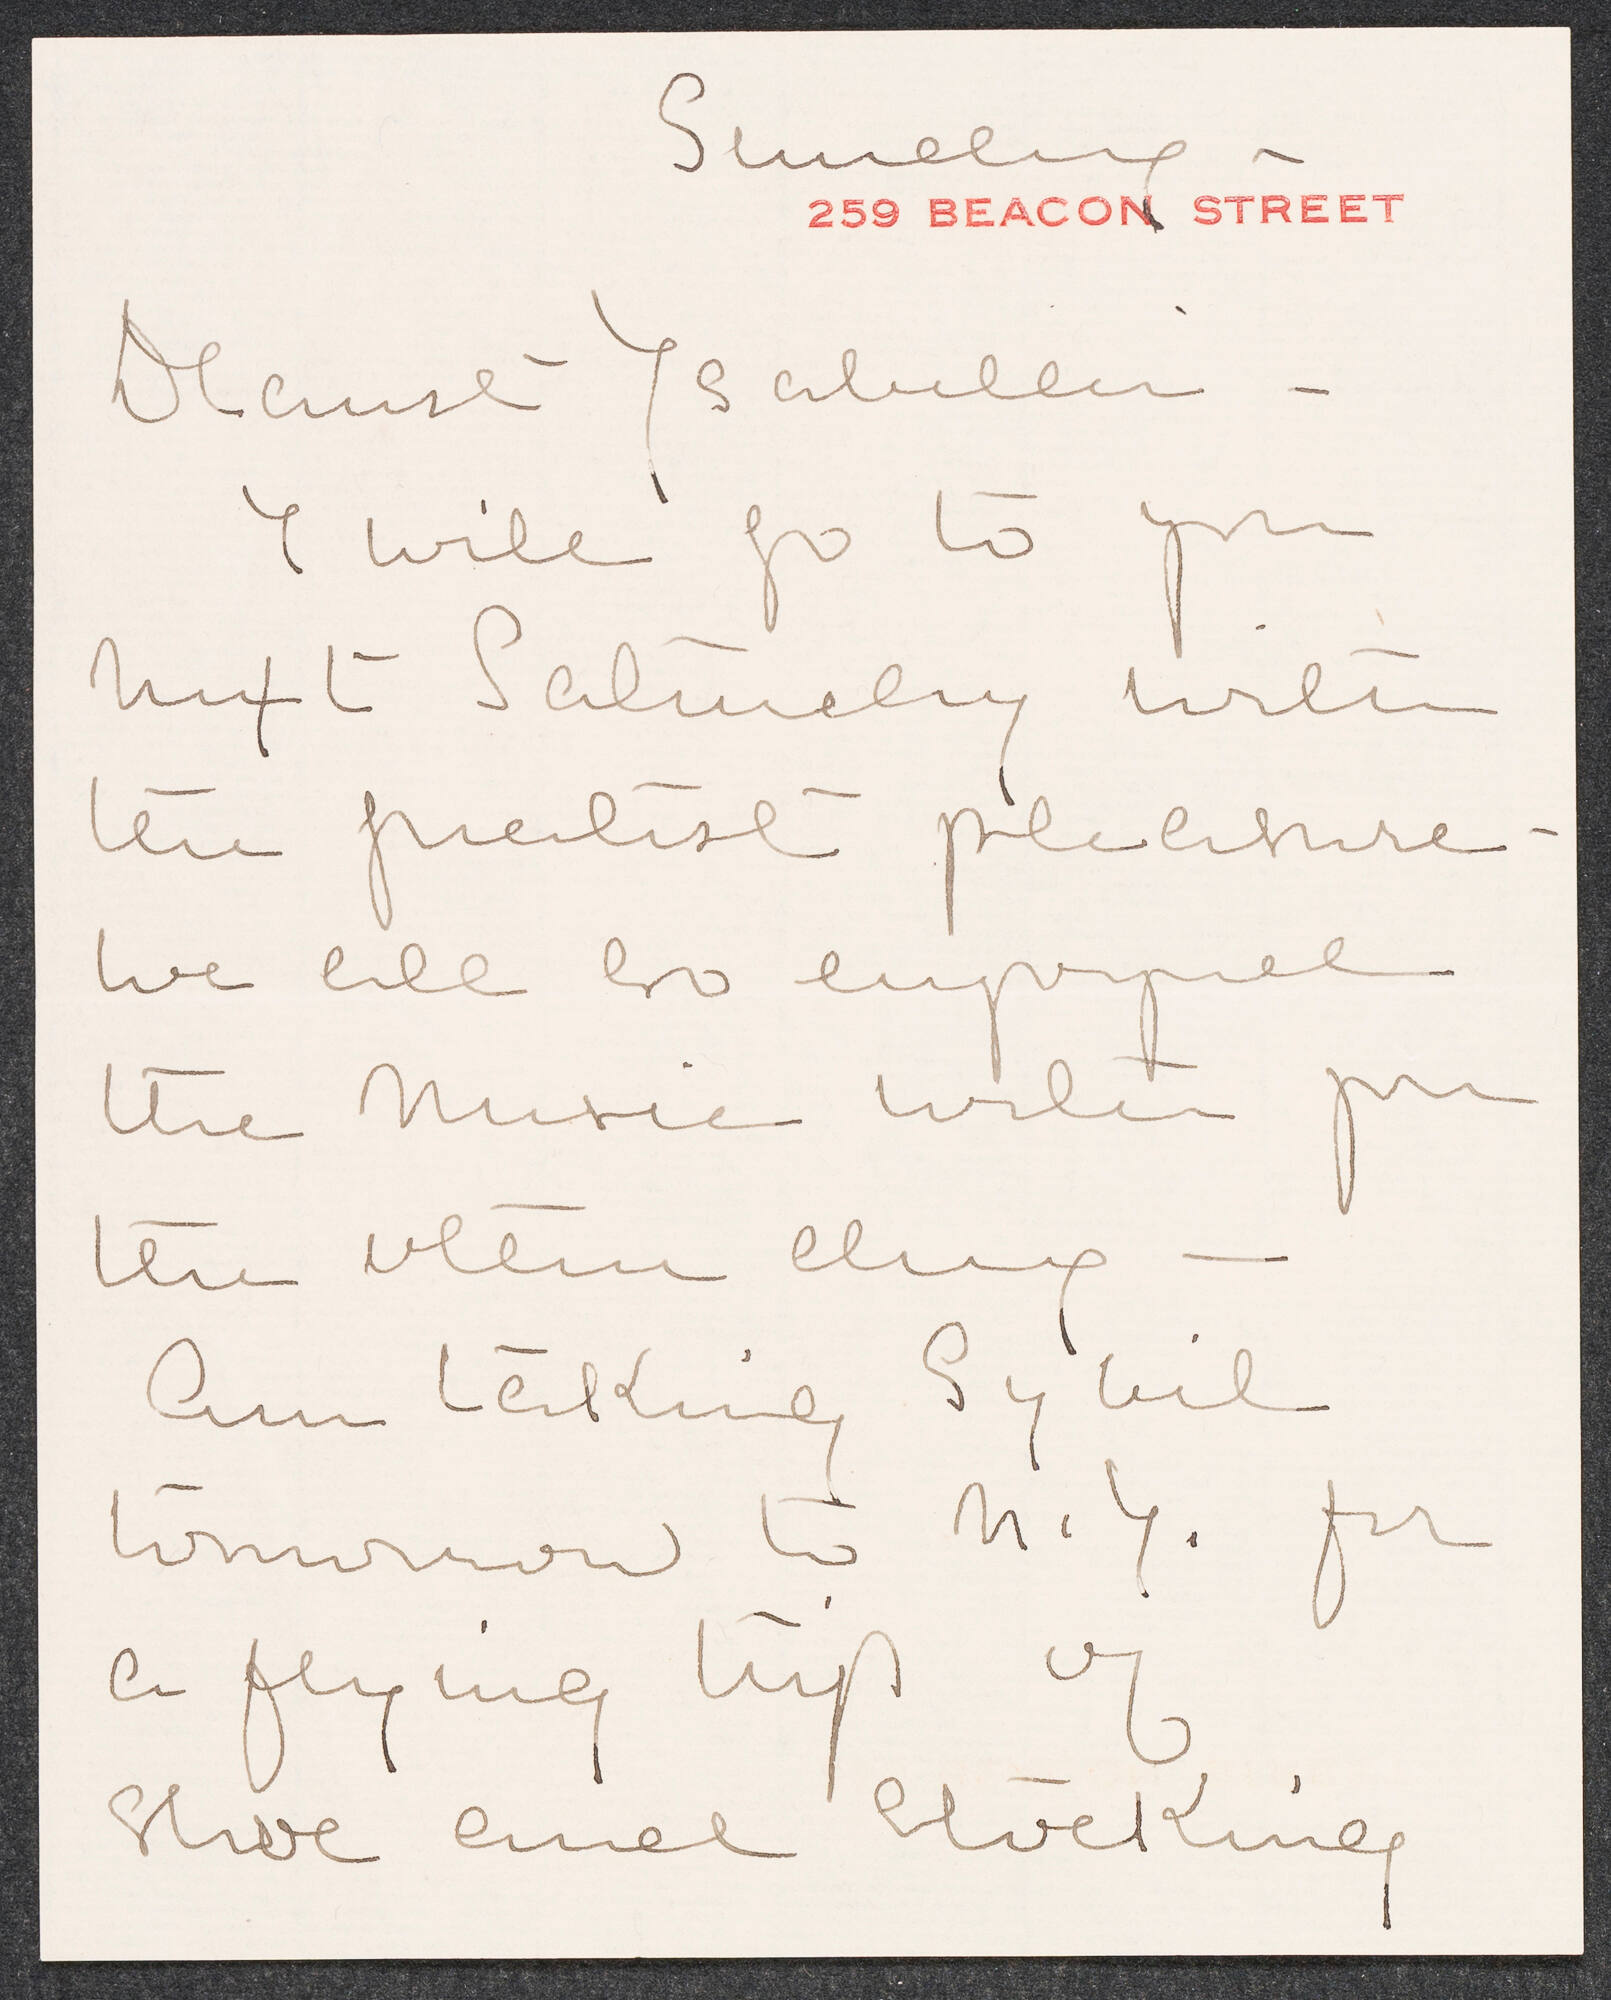 Sunday -
259 BEACON STREET
Dearest Ysabella -
I will go to you
next Saturday with
the greatest pleasure -
we all so enjoyed
the music with you
the other day —
Am taking Sybil
tomorrow to N.Y. for
a flying trip of
shoe and stocking